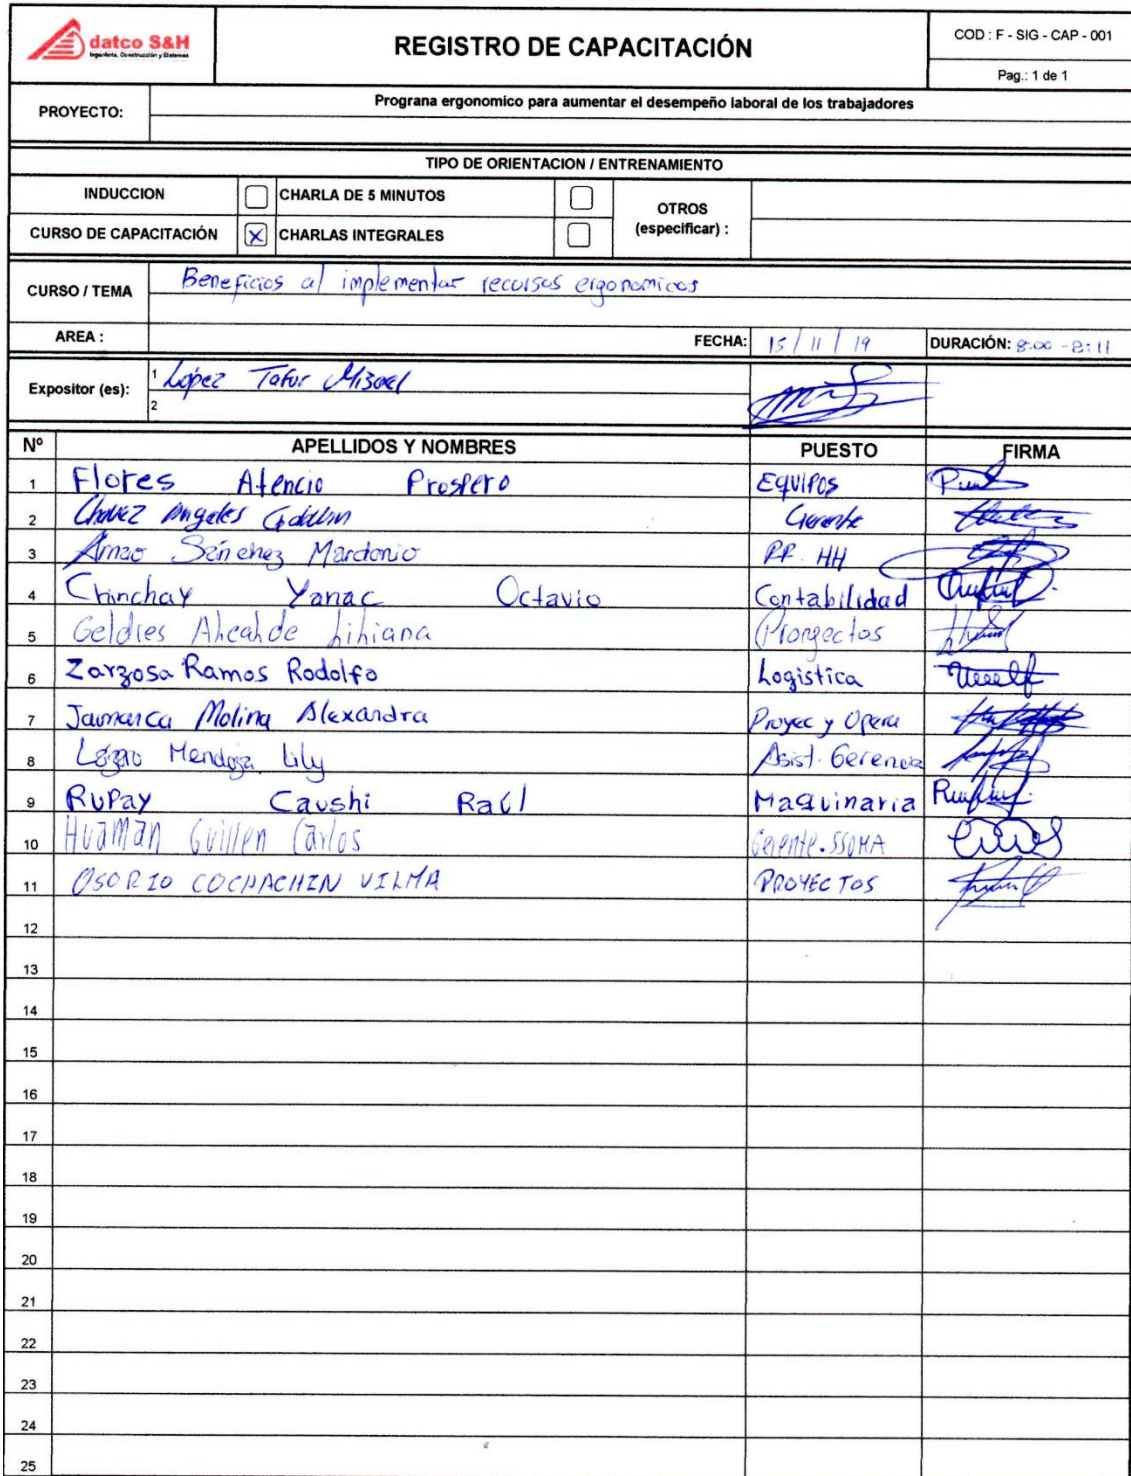 datco S&H
Ingeniería, Construcción y Sistemas
REGISTRO DE CAPACITACIÓN
COD : F - SIG - CAP - 001
Pag.: 1 de 1
PROYECTO:
Programa ergonomico para aumentar el desempeño laboral de los trabajadores
TIPO DE ORIENTACION / ENTRENAMIENTO
INDUCCION CHARLA DE 5 MINUTOS
OTROS (especificar) :
CURSO DE CAPACITACIÓN X CHARLAS INTEGRALES
CURSO / TEMA Beneficios al implementar recursos ergonomicos
AREA : FECHA: 15 / 11 / 19 DURACIÓN: 8:00 - 8:11
Expositor (es): 1 López Tafur Misael
2
Nº APELLIDOS Y NOMBRES PUESTO FIRMA
1 Flores Atencio Prospero Equipos
2 Chavez Angeles Gerente
3 Amao Sánchez Mardonio RR. HH
4 Chinchay Yanac Octavio Contabilidad
5 Geldres Alcalde Liliana
6 Zarzosa Ramos Rodolfo Logistica
7 Jaumarca Molina Alexandra Proyec y Opera
8 Mendoza Lily Asist. Gerencia
9 Rupay Caushi Raúl Maquinaria
10 Huaman Guillen Carlos Gerente. SSOMA
11 OSORIO COCHACHIN VILMA PROYECTOS
12
13
14
15
16
17
18
19
20
21
22
23
24
25